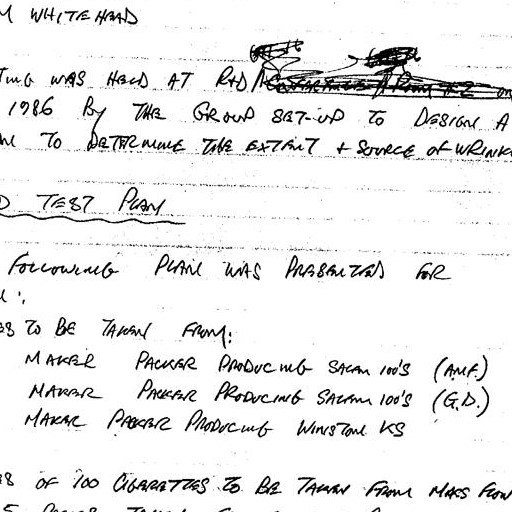 M WHITEHEAD
TING WAS HELD AT R&D
1986 BY THE GROUP SET-UP TO DESIGN A
TO DETERMINE THE EXTENT + SOURCE OF WRINK
D TEST PLAN
FOLLOWING PLAN WAS PRESENTED FOR
:
ES TO BE TAKEN FROM:
MAKER PACKER PRODUCING SALEM 100'S (AMF)
MAKER PACKER PRODUCING SALEM 100'S (G.D.)
MAKER PACKER PRODUCING WINSTON KS
ES OF 100 CIGARETTES TO BE TAKEN FROM MASS FLOW